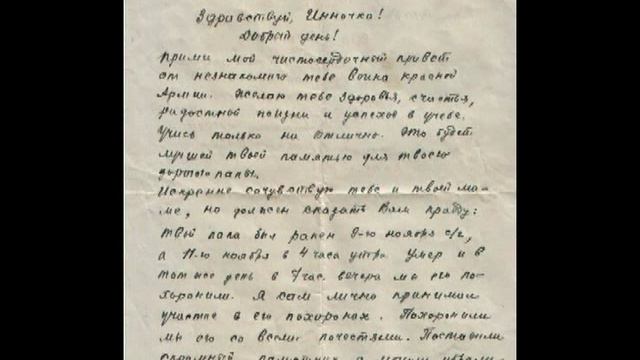 Здравствуй, Инночка!
Добрый день!
Прими мой чистосердечный привет
от незнакомого тебе воина красной
Армии. Желаю тебе здоровья, счастья,
радостной жизни и успехов в учебе.
Учись только на отлично. Это будет
лучшей твоей памятью для твоего
дорогого папы.
Искренне сочувствую тебе и твоей ма-
ме, но должен сказать Вам правду:
твой папа был ранен 9-го ноября с/г,
а 11-го ноября в 4 часа утра умер и в
тот же день в 7 час. вечера мы его по-
хоронили. Я сам лично принимал
участие в его похоронах. Похоронили
мы его со всеми почестями. Поставили
скромный памятник, а могилу